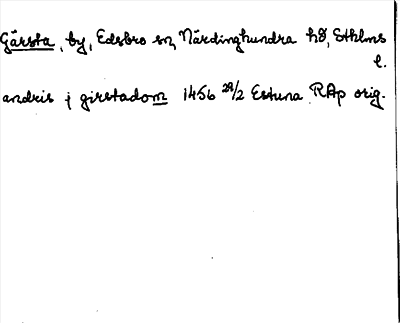 Gärsta, by, Edsbro sn, Närdinghundra hd, Sthlms
l.
andris j girstadom 1456 29/2 Estuna RAp orig.